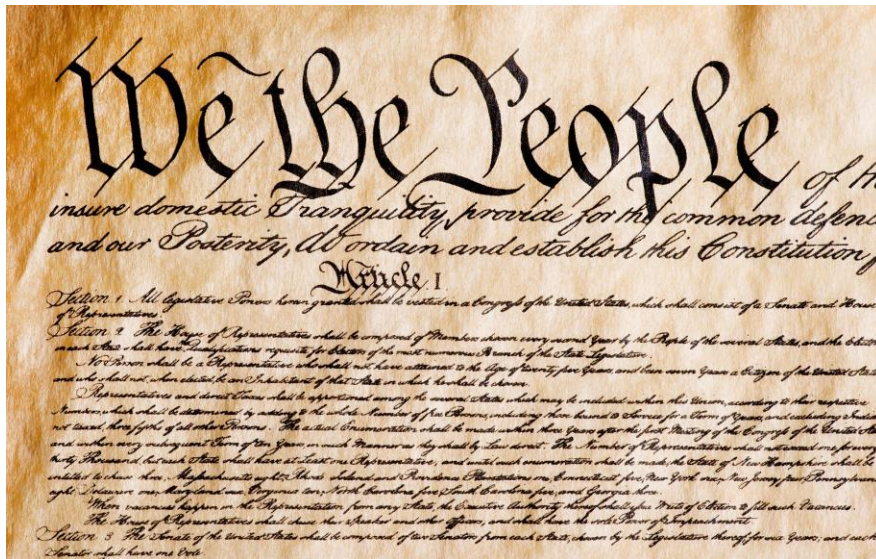 We the People of th
insure domestic Tranquility, provide for the common defenc
and our Posterity, do ordain and establish this Constitution f
Article I.
Section 1. All legislative Powers herein granted shall be vested in a Congress of the United States, which shall consist of a Senate and House
of Representatives.
Section 2. The House of Representatives shall be composed of Members chosen every second Year by the People of the several States, and the Electo
in each State shall have Qualifications requisite for Electors of the most numerous Branch of the State Legislature.
No Person shall be a Representative who shall not have attained to the Age of twenty five Years, and been seven Years a Citizen of the United Stat
and who shall not, when elected, be an Inhabitant of that State in which he shall be chosen.
Representatives and direct Taxes shall be apportioned among the several States which may be included within this Union, according to their respective
Numbers, which shall be determined by adding to the whole Number of free Persons, including those bound to Service for a Term of Years, and excluding India
not taxed, three fifths of all other Persons. The actual Enumeration shall be made within three Years after the first Meeting of the Congress of the United Stat
and within every subsequent Term of ten Years, in such Manner as they shall by Law direct. The Number of Representatives shall not exceed one for every
thirty Thousand, but each State shall have at Least one Representative; and until such enumeration shall be made, the State of New Hampshire shall be
entitled to chuse three, Massachusetts eight, Rhode Island and Providence Plantations one, Connecticut five, New York six, New Jersey four, Pennsylvania
eight, Delaware one, Maryland six, Virginia ten, North Carolina five, South Carolina five, and Georgia three.
When vacancies happen in the Representation from any State, the Executive Authority thereof shall issue Writs of Election to fill such Vacancies.
The House of Representatives shall chuse their Speaker and other Officers; and shall have the sole Power of Impeachment.
Section 3. The Senate of the United States shall be composed of two Senators from each State, chosen by the Legislature thereof for six Years; and each
Senator shall have one Vote.